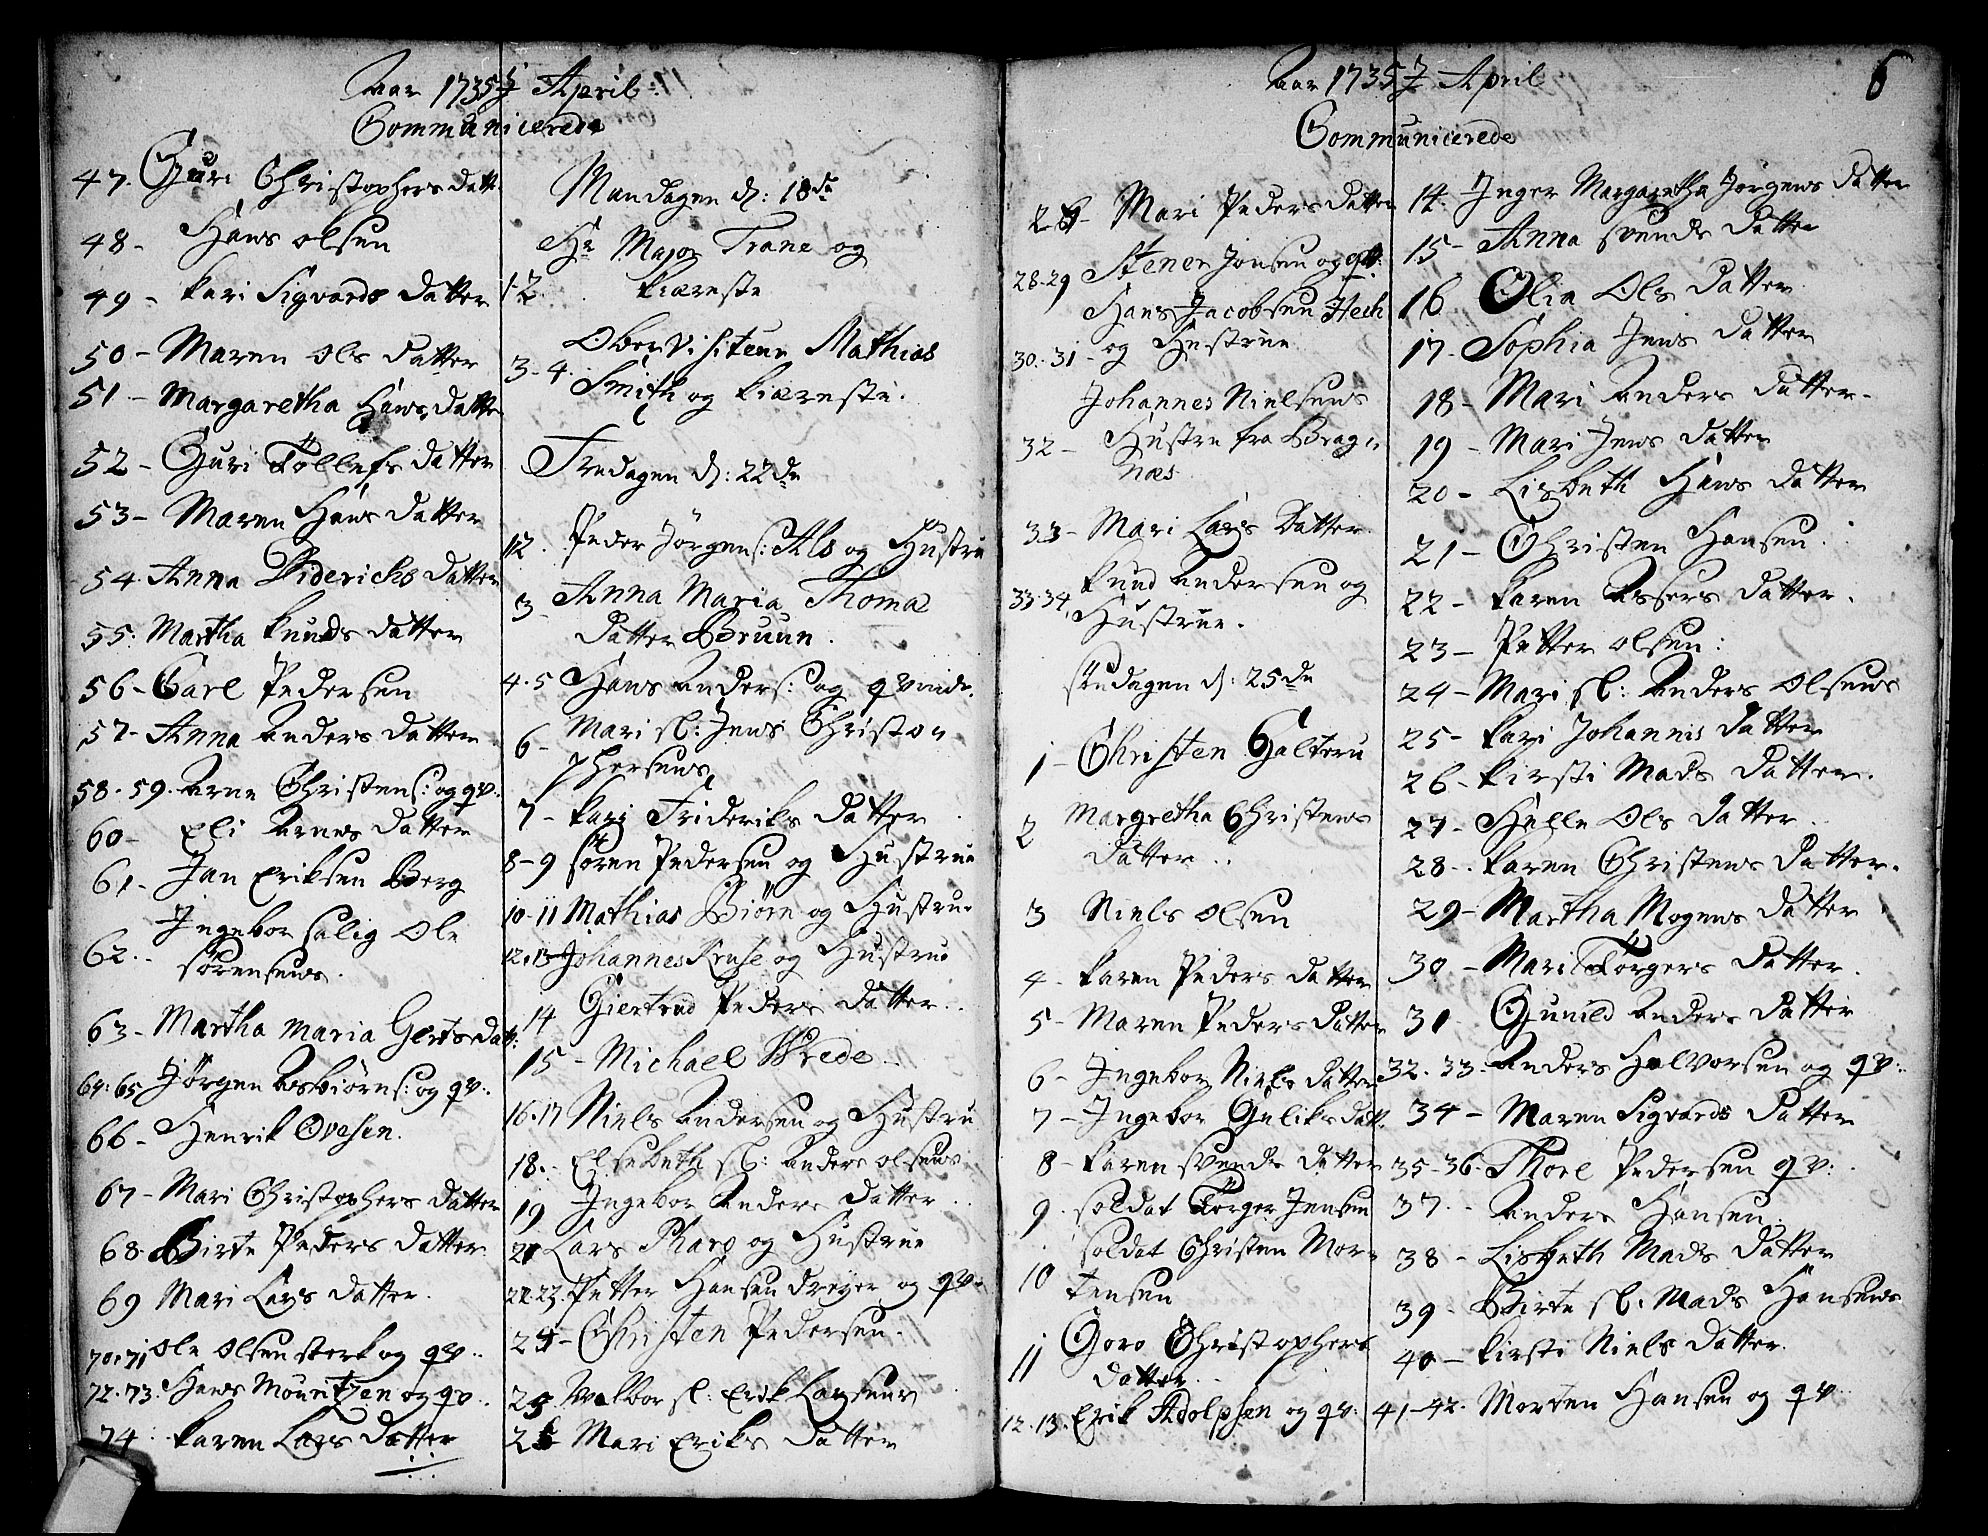 Aar 1735 J April
Communicerede
47. Guri Christophers datt:
48 - Hans olsen
49 - Kari Sigvards datter
50 - Maren Ols datter
51 - Margaretha Hans datter
52 - Guri Tollefs datter
53 - Maren Hans datter
54. Anna Diderichs datter
55. Martha Knuds datter
56 - Carl Pedersen
57 - Anna Anders datter
58. 59. Arne Christens: og qv:
60 - Eli Arnes datter
61 - Jan Eriksen Berg
Ingebor salig Ole
62. sørensens.
63 - Martha Maria Gertsdatt:
64. 65 Jørgen Asbiørns: og qv:
66 - Henrik Ovesen.
67 - Mari Christophers datter
68. Birte Peders datter
69 Mari Lars datter.
70. 71 Ole Olsen sterk og qv:
72. 73. Hans Mountzen og qv:
74. Karen Lars datter
Mandagen d: 18de
Hr Major Trane og
1. 2. Kiæreste
OberVisiteur Mathias
3. 4. Smith og Kiæreste.
Fredagen d: 22de
1.2. Peder Jørgens: Als og Hustru
3 Anna Maria Thomæ
datter Bruun.
4. 5 Hans Anders: og qvinde.
6 - Mari sl: Jens Christo-
phersens
7 - Kari Frideriks datter
8 - 9 søren Pedersen og Hustrue
10 - 11 Mathias Biørn og Hustrue
12. 13 Johannes Kruse og Hustrue
14 Giertrud Peders datter.
15 - Michael Wrede
16. 17 Niels Andersen og Hustru
18. Elsebeth sl: Anders olsens
19 Ingebor Anders datter
21 Lars Pharo og Hustrue
22. 23. Petter Hansen dreyer og qv:
24 - Christen Pedersen.
25 Walbor sl: Erik Larsens
26 Mari Eriks datter
Aar 1735 J April
6
Communicerede
26 - Mari Peders datter
28. 29 Stener Jonsen og qv:
Hans Jacobsen Hech
30. 31 - og Hustrue
Johannes Nielsens
32 - Hustru fra Brag-
næs
33 - Mari Lars datter
Knud Andersen og
33. 34. Hustrue.
søndagen d: 25de
1 - Christen Galteru
Margretha Christens
2 datter
3 Niels olsen
4 - Karen Peders datter
5 - Maren Peders datter
6 - Ingebor Niels datter
7 - Ingebor Guliks datt.
8 - Karen svends datter
9. soldat Torger Jensen
soldat Christen Mor-
10 tensen
Goro Christophers
11 datter
12. 13. Erik Adolphsen og qv:
14. Inger Margaretha Jørgens datter
15 - Anna svends datter
16 Olia Ols datter
17. Sophia Jens datter
18 - Mari Anders datter.
19 - Mari Jens datter
20 - Lisbeth Hans datter
21 - Christen Hansen.
22 - Karen Assers datter.
23 - Petter olsen:
24 - Mari sl: Anders Olsens
25 - Kari Johannis datter
26 - Kirsti Mads datter.
27 - Helle Ols datter.
28. Karen Christens datter.
29 - Martha Mogens datter
30 - Mari Torgers datter.
31 Gunild Anders datter
32. 33. Anders Halvorsen og qv:
34 - Maren Sigvards datter
35 - 36. Thore Pedersen qv:
37. - Anders Hansen
38 - Lisbeth Mads datter
39. Birte sl. Mads Hansens
40 - Kirsti Niels datter.
41 - 42. Morten Hansen og qv